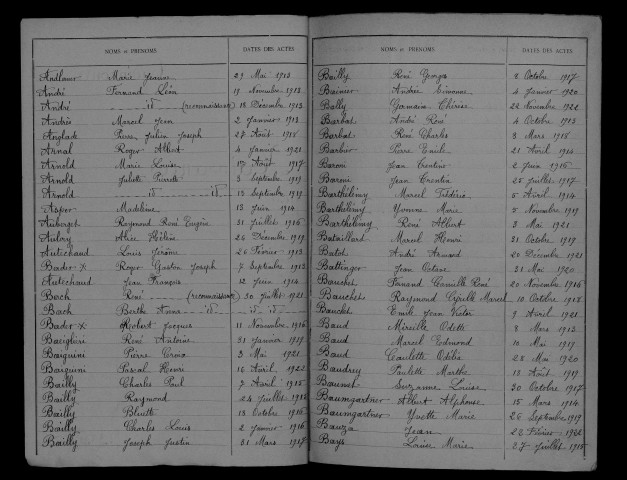 NOMS et PRENOMS DATES DES ACTES
Andlauer Marie Jeanne 29 Mai 1913
André Fernand Léon 19 Novembre 1913
André id (reconnaissance) 18 Décembre 1913
Andrés Marcel Jean 2 Janvier 1913
Anglade Pierre Julien Joseph 27 Août 1918
Arnal Roger Albert 4 Janvier 1921
Arnold Marie Louise 17 Août 1917
Arnold Juliette Pierrette 3 Septembre 1919
Arnold id id 13 Septembre 1919
Asper Madeleine 13 Juin 1914
Auberget Raymond René Eugène 31 Juillet 1916
Aubry Alice Hélène 26 Décembre 1919
Autechaud Louis Jérôme 26 Février 1913
Bader x Roger Gaston Joseph 7 Septembre 1913
Autechaud Jean François 12 Juin 1914
Bach René (reconnaissance) 30 Juillet 1921
Bach Berthe Anna id id id
Bader x Robert Jacques 11 Novembre 1916
René Antoine 31 Janvier 1919
Pierre 3 Mai 1921
Pascal Henri 16 Avril 1922
Bailly Charles Paul 7 Avril 1915
Bailly Raymond 24 Juillet 1915
Bailly Bluette 18 Octobre 1916
Bailly Charles Louis 2 Janvier 1916
Bailly Joseph Justin 31 Mars 1917
NOMS et PRENOMS DATES DES ACTES
Bailly René Georges 2 Octobre 1917
Bainier Andrée Simonne 4 Janvier 1920
Bally Germaine Thérèse 22 Novembre 1922
Barbat André René 4 Octobre 1913
Barbat René Charles 3 Mars 1918
Barbier Pierre Emile 21 Avril 1920
Baroni Jean 2 Juin 1916
Baroni Jean Quentin 25 Juillet 1917
Barthélémy Marcel Frédéric 5 Avril 1914
Barthélémy Yvonne Marie 5 Novembre 1919
Barthélémy René Albert 3 Mai 1921
Bataillard Marcel Henri 21 Octobre 1917
Batot André Armand 20 Décembre 1921
Battinger Jean Octave 21 Mai 1920
Bauchet Fernand Camille René 20 Novembre 1916
Bauchet Raymond Marcel 10 Octobre 1918
Bauchet Emile Jean Victor 9 Avril 1921
Baud Mireille Odette 8 Mars 1913
Baud Marcel Edmond 10 Mai 1919
Baud Paulette Odile 28 Mai 1920
Baudrey Paulette Marthe 13 Août 1919
Baunet Suzanne Louise 30 Octobre 1917
Baumgartner Albert Alphonse 15 Mars 1914
Baumgartner Yvette Marie 26 Septembre 1919
Bauza Jean 22 Février 1922
Bays Louise Marie 27 Juillet 1915